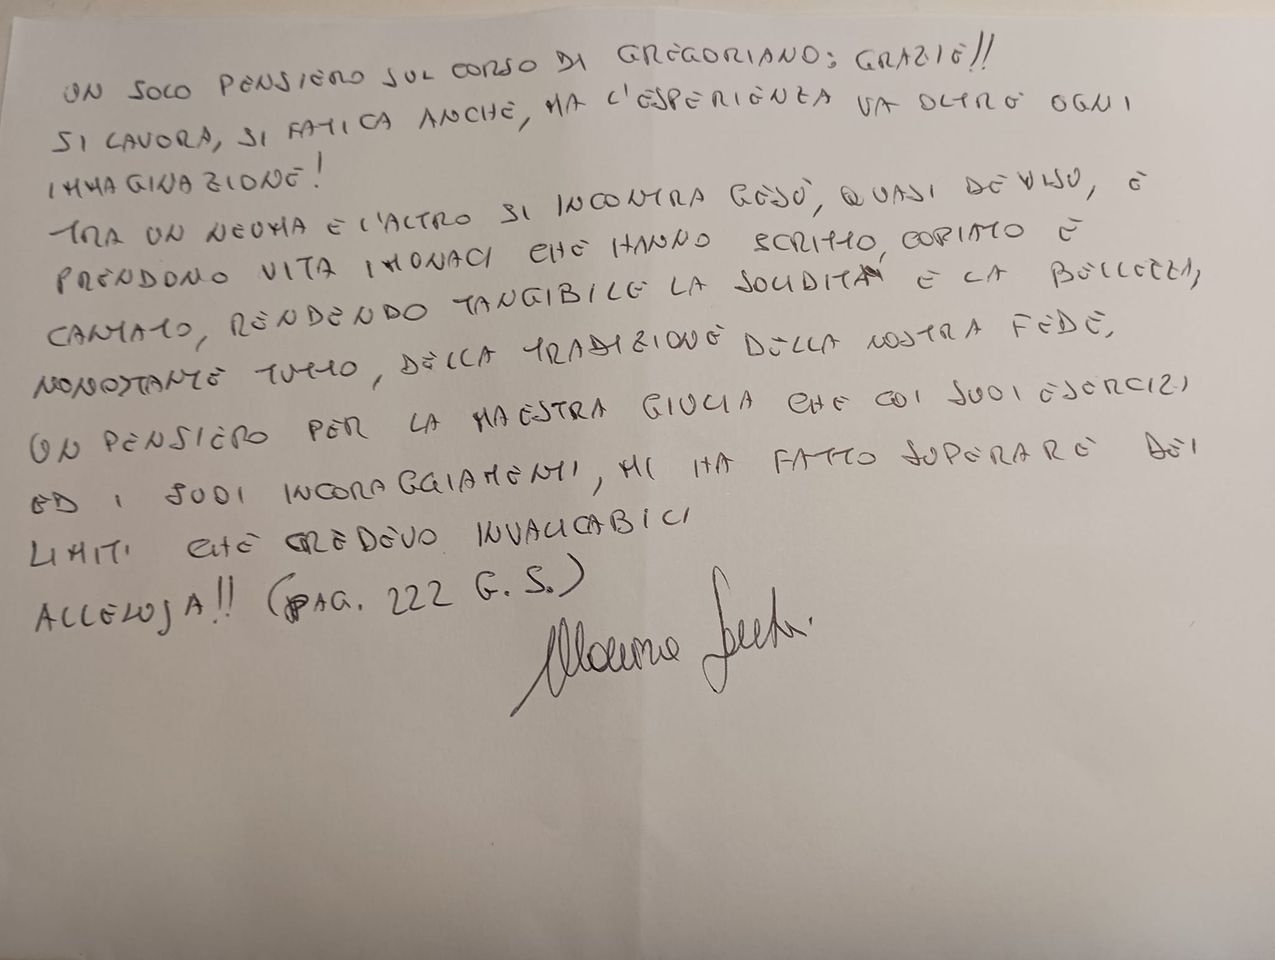 UN SOLO PENSIERO SUL CORSO DI GREGORIANO: GRAZIE!!
SI LAVORA, SI FATICA ANCHE, MA L'ESPERIENZA VA OLTRE OGNI
IMMAGINAZIONE!
TRA UN NEUMA E L'ALTRO SI INCONTRA GESÙ, QUASI DE VISO, E
PRENDONO VITA I MONACI CHE HANNO SCRITTO, COPIATO E
CANTATO, RENDENDO TANGIBILE LA SOLIDITÀ E LA BELLEZZA,
NONOSTANTE TUTTO, DELLA TRADIZIONE DELLA NOSTRA FEDE.
UN PENSIERO PER LA MAESTRA GIULIA CHE COI SUOI ESERCIZI
ED I SUOI INCORAGGIAMENTI, MI HA FATTO SUPERARE DEI
LIMITI CHE CREDEVO INVALICABILI
ALLELUJA!! (PAG. 222 G. S.)